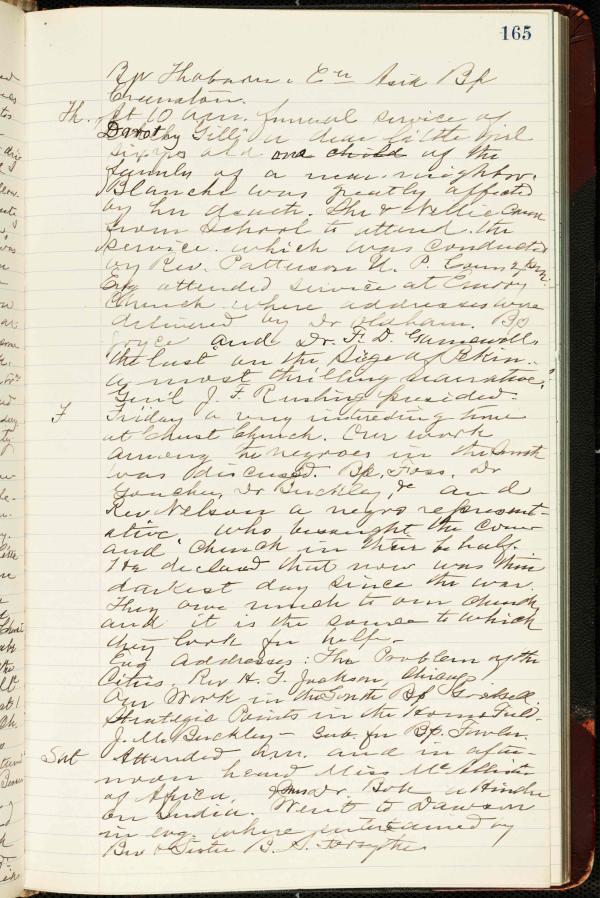 165
Bp Thoburn, & En Asia Bp
Cranston.
Th. At 10 a.m. funeral service of
Dorothy Gill, a dear little girl
six yrs old one child of the
family of a near neighbor.
Blanche was greatly affected
by her death. She & Nellie came
from School to attend the
service. which was conducted
by Rev. Patterson U. P.
Evg attended service at Emory
Church where addresses were
delivered by Dr Oldham. Bp
Joyce and Dr. F. D. Gamewell
"the last" on the Siege of Pekin..
a most thrilling narrative.
Gen'l J. F. Rusling presided.
F Friday a very interesting time
at Christ Church. Our work
among the negroes in the South
was discussed. Bp. Foss. Dr
Goucher, Dr Buckley, &c and
Rev Nelson a negro represent-
ative, who besought the
and Church in their behalf.
He declared that now was their
darkest day since the war.
They owe much to our church
and it is the source to which
they look for help.
Evg Addresses: The Problem of the
Cities. Rev H. G. Jackson, Chicago
Our Work in the South Bp Goodsell,
Strategic Points in the Home Field.
J. M. Buckley - sub. for Bp. Fowler.
Sat Attended a.m. and in after-
noon heard Miss McAllister
of Africa, Dr. a Hindu
on India. Went to Dawson
in evg. where entertained by
Bro & Sister B. S. Forsythe